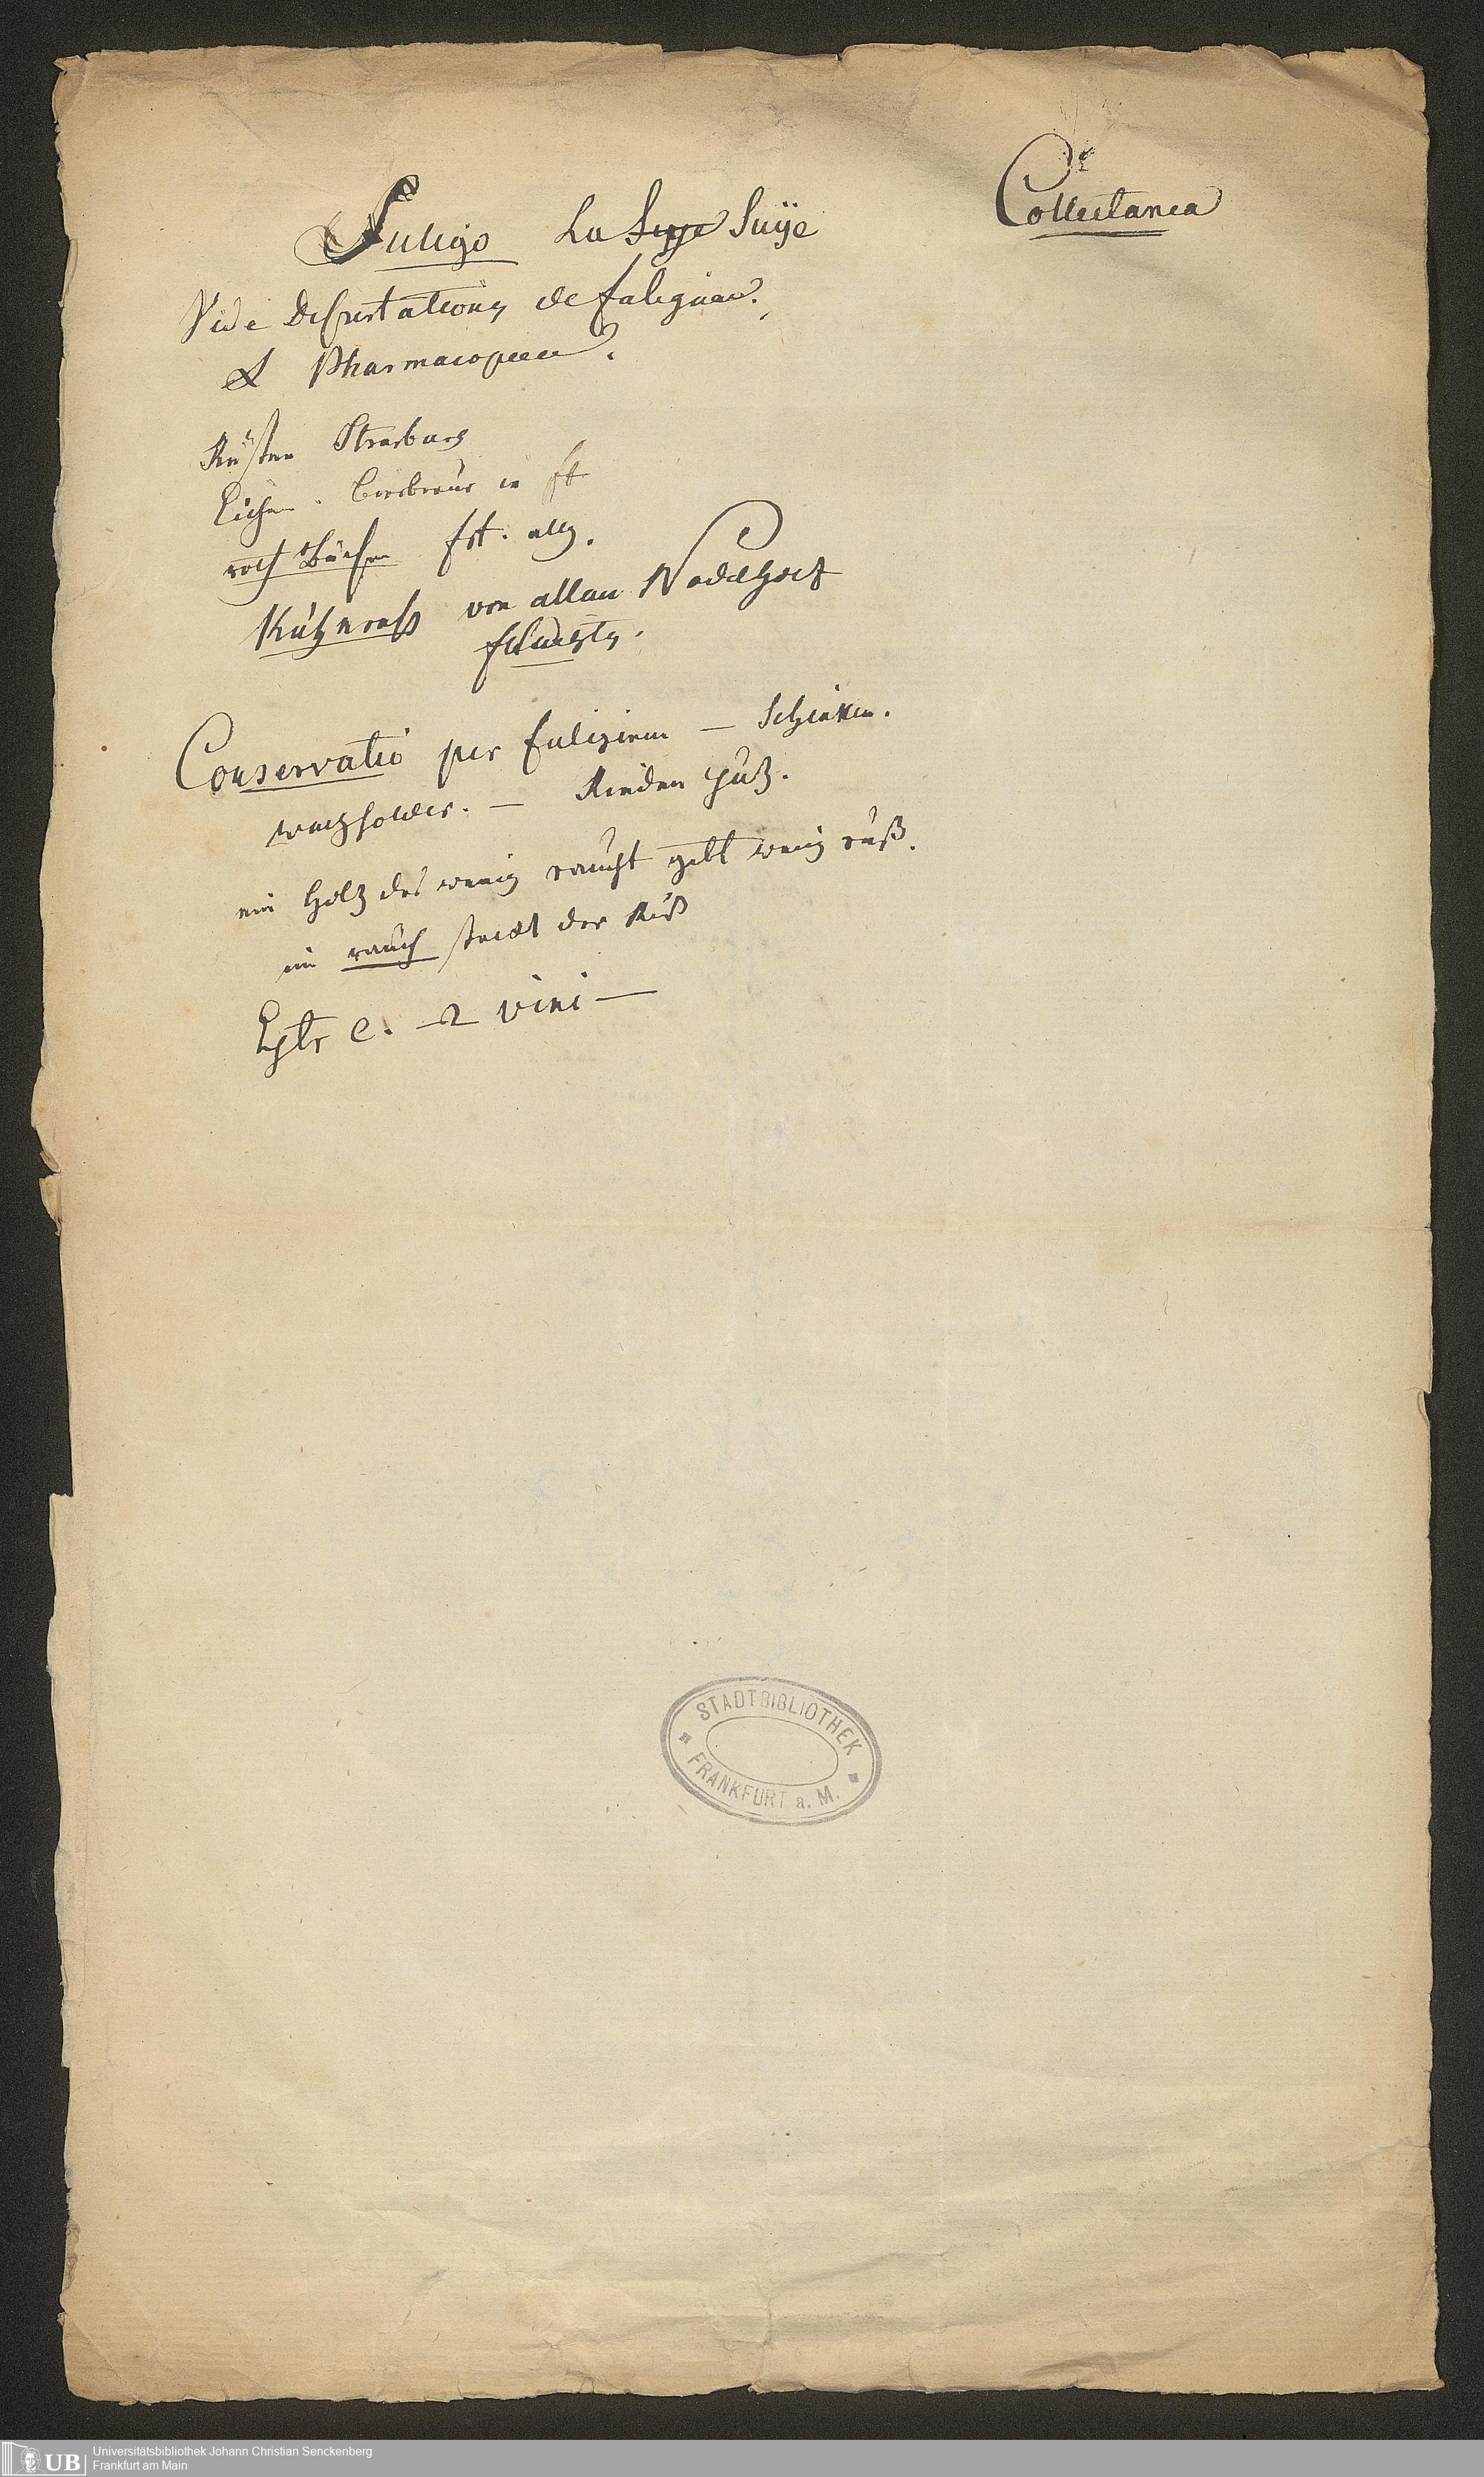 Collectanea
Fuligo La Suye Suÿe
Vide Dissertationes de fuligine.
& Pharmacopoeae.
Rüsten Strasburg
Eichen. Bierbrauer in ff
roth Büchen fft. allg.
Kühnrus von allen Nadelholz
Conservatio per fuliginem — Schinken.
wachholder. — Rinden Holz.
ein Holz das wenig raucht gibt wenig ruß.
im rauch steckt der Ruß
vini —
STADTBIBLIOTHEK
FRANKFURT a. M.
UB
Universitätsbibliothek Johann Christian Senckenberg
Frankfurt am Main